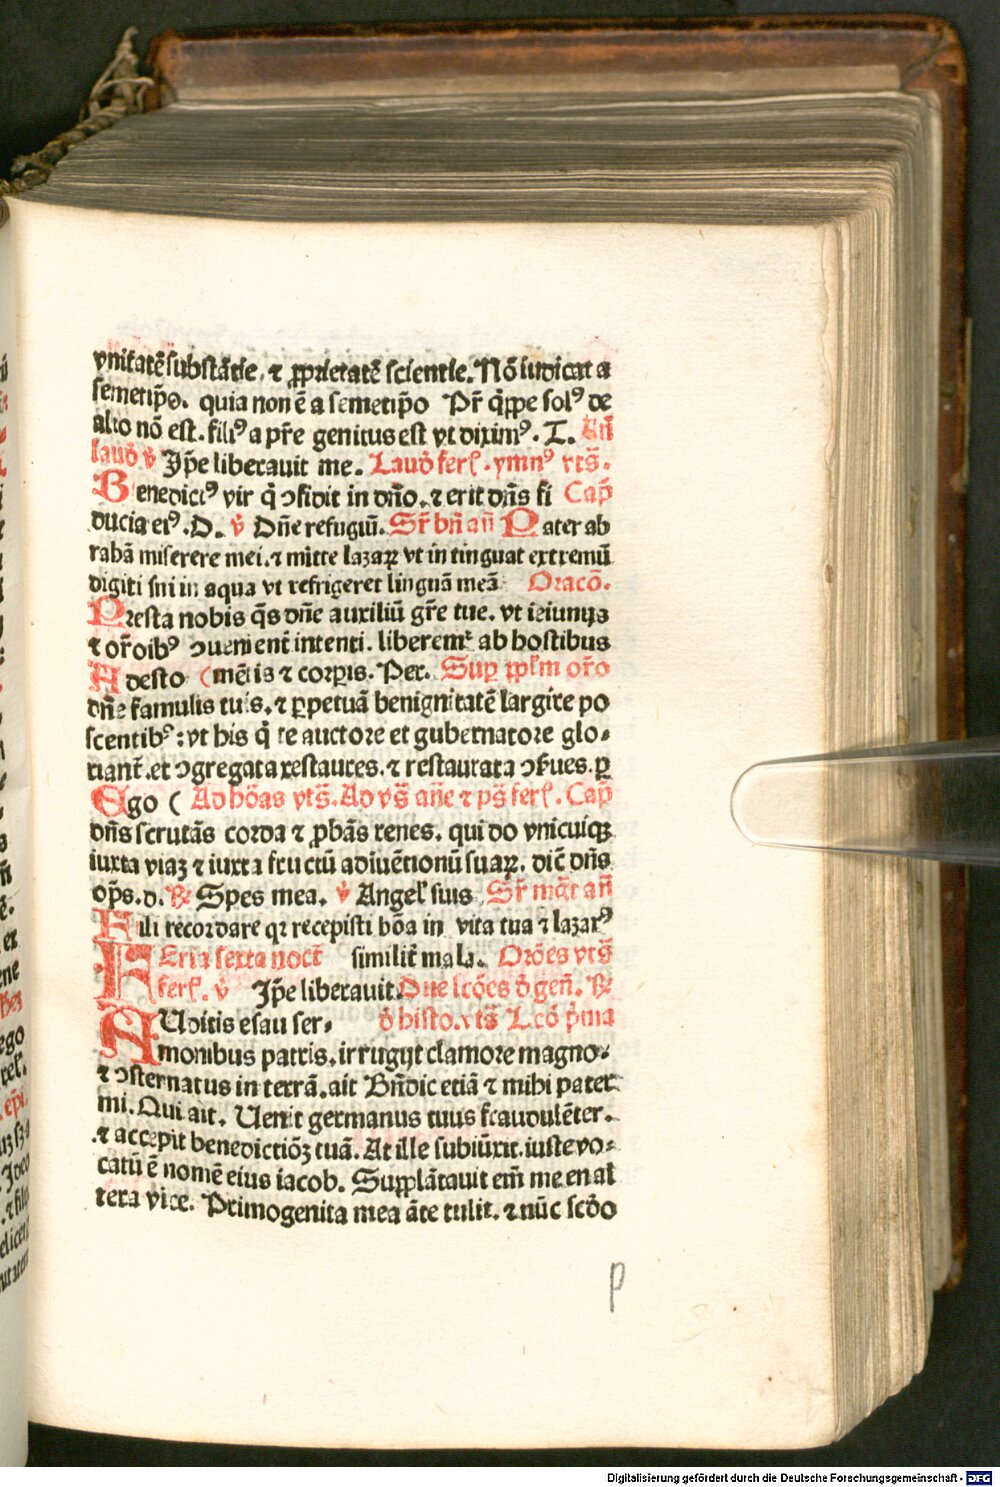 vnitatē substātie. ⁊ ꝓprietatē scientie. Nō iudicat a
semetip̄o. quia non ē a semetip̄o Pr̄ q̄ppe solꝰ de
alio nō est. filiꝰ a pr̄e genitus est vt diximꝰ. T. Bn̄
laud̄ v̄ Ip̄e liberauit me. Laud̄ ferl̄. ymnꝰ vts̄.
Benedictꝰ vir q̄ ↄfidit in dn̄o. ⁊ erit dn̄s fi Cap̄
ducia eiꝰ. D. v̄ Dn̄e refugiū. Sr̄ bn̄ an̄ Pater ab
rahā miserere mei. ⁊ mitte lazaꝝ vt in tinguat extremū
digiti sui in aqua vt refrigeret linguā meā Oracō.
Presta nobis q̄s dn̄e auxiliū gr̄e tue. vt ieiunijs
⁊ or̄oibꝰ ↄuenient̄ intenti. liberemᷓ ab hostibus
Adesto ( mētis ⁊ corꝑis. Per. Suꝑ ꝓpl̄m or̄o
dn̄e famulis tuis. ⁊ ꝑpetuā benignitatē largire po
scentibꝰ: vt his q̄ te auctore et gubernatore glo⸗
riant̄. et ↄgregata restaures. ⁊ restaurata ↄserues. ꝑ
Ego ( Ad hōas vts̄. Ad vs̄ an̄e ⁊ ps̄ ferl̄. Cap̄
dn̄s scrutās corda ⁊ ꝓbās renes. qui do vnicuiqꝫ
iuxta viaꝫ ⁊ iuxta fructū adiuētionū suaꝝ. dic̄ dn̄s
op̄s. d. ℟ Spes mea. v̄ Angel̄ suis. Sr̄ mag̅t an̄
Fili recordare qꝛ recepisti bōa in vita tua ⁊ lazarꝰ
FEria sexta noct̄ similit̄ mala. Orōes vts̄
ferl̄. v̄ Ip̄e liberauit. Due lcōes d̄ gen̄. ℟
AUditis esau ser⸗ d̄ histo. vts̄ Lcō pͥma
monibus patris. irrugijt clamore magno⸗
⁊ ↄsternatus in terrā. ait Bn̄dic etiā ⁊ mihi pater
mi. Qui ait. Uenit germanus tuus fraudulēter.
⁊ accepit benedictiōꝫ tuā. At ille subiūxit. iuste vo⸗
catū ē nomē eius iacob. Supplātauit em̄ me en al
tera vice. Primogenita mea āte tulit. ⁊ nūc scd̄o
p
Digitalisierung gefördert durch die Deutsche Forschungsgemeinschaft - DFG